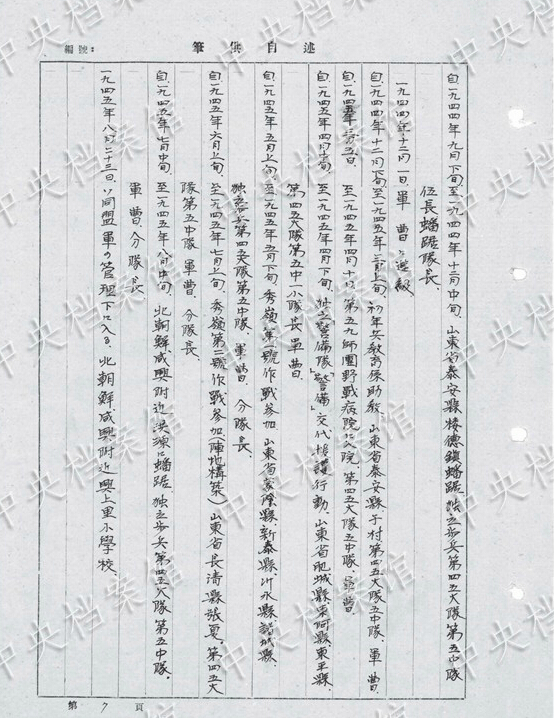 編號:
筆供自述
自一九四四年九月下旬、至一九四四年十二月中旬、山東省泰安縣樓德鎮蟠踞、独立歩兵第四五大隊第五中隊
伍長蟠踞隊長、
一九四四年十二月一日、軍曹に進級
自一九四四年十二月下旬、至一九四五年三月上旬、初年兵教育係助教、山東省泰安縣于村第四五大隊五中隊、軍曹、
至一九四五年四月十日、第五九師團野戰病院に入院、第四五大隊五中隊、軍曹、
至一九四五年四月下旬、独立警備隊「警備」交代援護行動、山東省肥城縣東阿縣、東平縣、
第四五大隊第五中一小隊長軍曹、
自一九四五年五月上旬、至一九四五年五月下旬、秀嶺第一號作戰参加、山東省蒙陰縣新泰縣沂水縣諸城縣、
独立歩兵第四五大隊第五中隊、軍曹、分隊長、
自一九四五年六月上旬、至一九四五年七月上旬、秀嶺第二號作戰参加(陣地構築)山東省長清縣張夏、第四五大
隊第五中隊、軍曹、分隊長、
自一九四五年七月中旬、至一九四五年八月中旬、北朝鮮咸興附近洪源に蟠踞、独立歩兵第四五大隊第五中隊、
軍曹、分隊長、
一九四五年八月二十二日、ソ同盟軍の管理下に入る、北朝鮮、咸興附近興上里小學校、
第 7 頁
中央档案馆